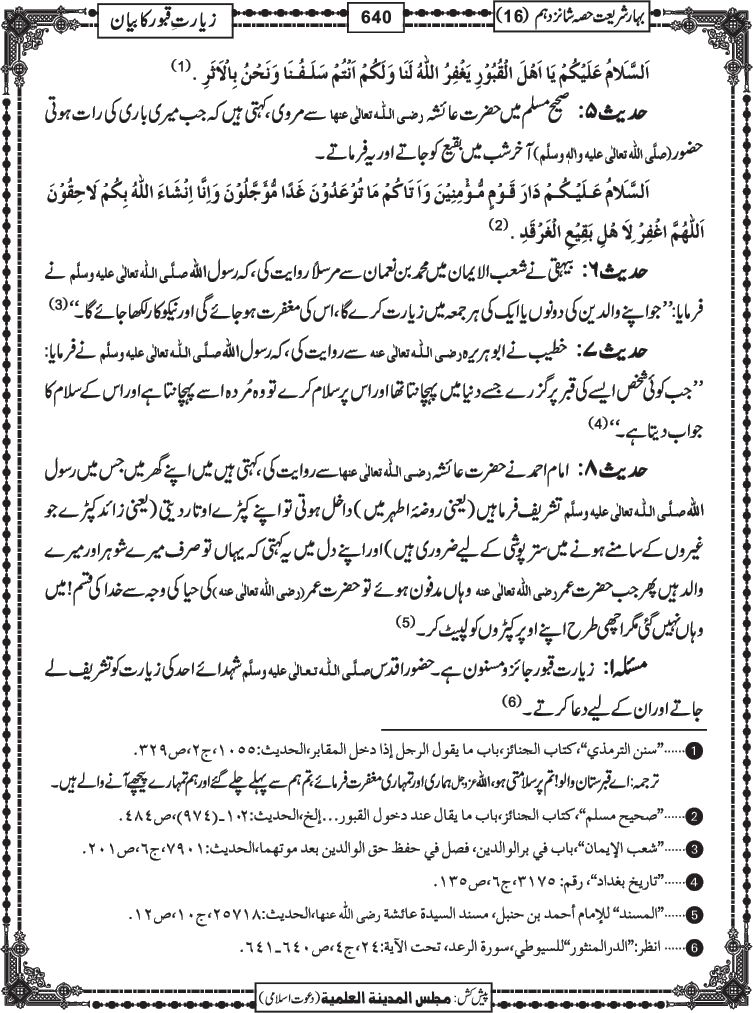 بہار شریعت حصہ شانزدہم (16)
640
زیارتِ قبور کا بیان
اَلسَّلَامُ عَلَیْکُمْ یَا اَھْلَ الْقُبُوْرِ یَغْفِرُ اللّٰہُ لَنَا وَلَکُمْ اَنْتُمْ سَلَـفُـنَا وَنَحْنُ بِالْاَثَرِ . (1)
حدیث ۵: صحیح مسلم میں حضرت عائشہ رضی اللہ تعالٰی عنہا سے مروی، کہتی ہیں کہ جب میری باری کی رات ہوتی
حضور (صلَّی اللہ تعالٰی علیہ واٰلہٖ وسلَّم) آخر شب میں بقیع کو جاتے اور یہ فرماتے۔
اَلسَّلَامُ عَلَیْـکُـمْ دَارَ قَـوْمٍ مُّـؤْمِنِیْنَ وَاَتَاکُمْ مَا تُوْعَدُوْنَ غَدًا مُؤَجَّلُوْنَ وَاِنَّا اِنْشَاءَ اللّٰہُ بِکُمْ لَاحِقُوْنَ
اَللّٰہُمَّ اغْفِرْ لِاَ ھْلِ بَقِیْعِ الْغَرْقَدِ . (2)
حدیث ۶: بیہقی نے شعب الایمان میں محمد بن نعمان سے مرسلاً روایت کی، کہ رسول اللہ صلَّی اللہ تعالٰی علیہ وسلَّم نے
فرمایا: ’’جو اپنے والدین کی دونوں یا ایک کی ہر جمعہ میں زیارت کرے گا، اس کی مغفرت ہوجائے گی اور نیکو کار لکھا جائے گا۔‘‘ (3)
حدیث ۷: خطیب نے ابوہریرہ رضی اللہ تعالٰی عنہ سے روایت کی، کہ رسول اللہ صلَّی اللہ تعالٰی علیہ وسلَّم نے فرمایا:
’’جب کوئی شخص ایسے کی قبر پر گزرے جسے دنیا میں پہچانتا تھا اور اس پر سلام کرے تو وہ مُردہ اسے پہچانتا ہے اور اس کے سلام کا
جواب دیتا ہے۔‘‘ (4)
حدیث ۸: امام احمد نے حضرت عائشہ رضی اللہ تعالٰی عنہا سے روایت کی، کہتی ہیں میں اپنے گھر میں جس میں رسول
اللہ صلَّی اللہ تعالٰی علیہ وسلَّم تشریف فرما ہیں (یعنی روضۂ اطہر میں) داخل ہوتی تو اپنے کپڑے اوتار دیتی (یعنی زائد کپڑے جو
غیروں کے سامنے ہونے میں ستر پوشی کے لیے ضروری ہیں) اور اپنے دل میں یہ کہتی کہ یہاں تو صرف میرے شوہر اور میرے
والد ہیں پھر جب حضرت عمر رضی اللہ تعالٰی عنہ وہاں مدفون ہوئے تو حضرت عمر (رضی اللہ تعالٰی عنہ) کی حیا کی وجہ سے خدا کی قسم! میں
وہاں نہیں گئی مگر اچھی طرح اپنے اوپر کپڑوں کو لپیٹ کر۔ (5)
مسئلہ ۱: زیارت قبور جائز و مسنون ہے۔ حضور اقدس صلَّی اللہ تعالٰی علیہ وسلَّم شہدائے احد کی زیارت کو تشریف لے
جاتے اور ان کے لیے دعا کرتے۔ (6)
1 ......”سنن الترمذي“، کتاب الجنائز، باب ما یقول الرجل إذا دخل المقابر، الحدیث: ۱۰۵۵، ج۲، ص۳۲۹.
ترجمہ: اے قبرستان والو! تم پر سلامتی ہو، اللہ عزوجل ہماری اور تمہاری مغفرت فرمائے، تم ہم سے پہلے چلے گئے اور ہم تمہارے پیچھے آنے والے ہیں۔
2 ......”صحیح مسلم“، کتاب الجنائز، باب ما یقال عند دخول القبور...إلخ، الحدیث: ۱۰۲ـ(۹۷۴)، ص۴۸۴.
3 ......”شعب الإیمان“، باب في برالوالدین، فصل في حفظ حق الوالدین بعد موتھما، الحدیث: ۷۹۰۱، ج۶، ص۲۰۱.
4 ......”تاریخ بغداد“، رقم: ۳۱۷۵، ج۶، ص۱۳۵.
5 ......”المسند“ للإمام أحمد بن حنبل، مسند السیدة عائشة رضی اللہ عنھا، الحدیث: ۲۵۷۱۸، ج۱۰، ص۱۲.
6 ...... انظر: ”الدرالمنثور“ للسیوطي، سورة الرعد، تحت الآیة: ۲۴، ج۴، ص۶۴۰ـ۶۴۱.
پیش کش: مجلس المدینة العلمیة (دعوت اسلامی)